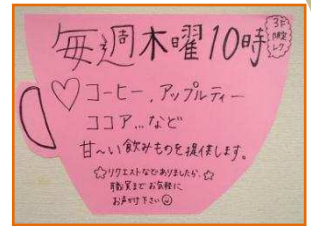 毎週木曜10時
3F
限定
レク
♡コーヒー、アップルティー
ココア...など
甘〜い飲みものを提供します。
☆リクエストなどありましたら、
職員までお気軽に
お声がけ下さい☺